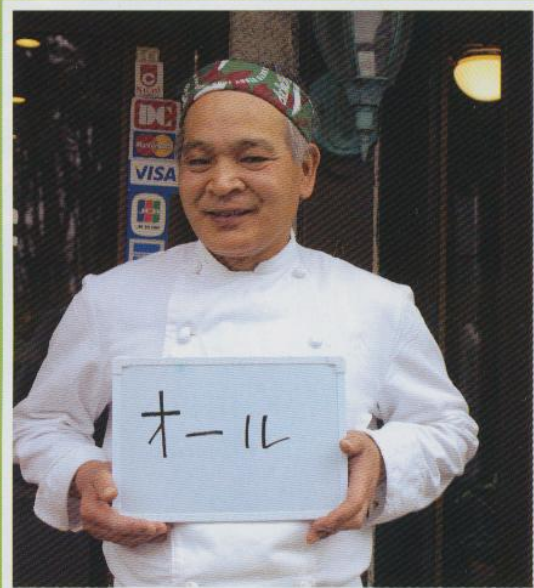 DC
MasterCard
VISA
JCB
オール